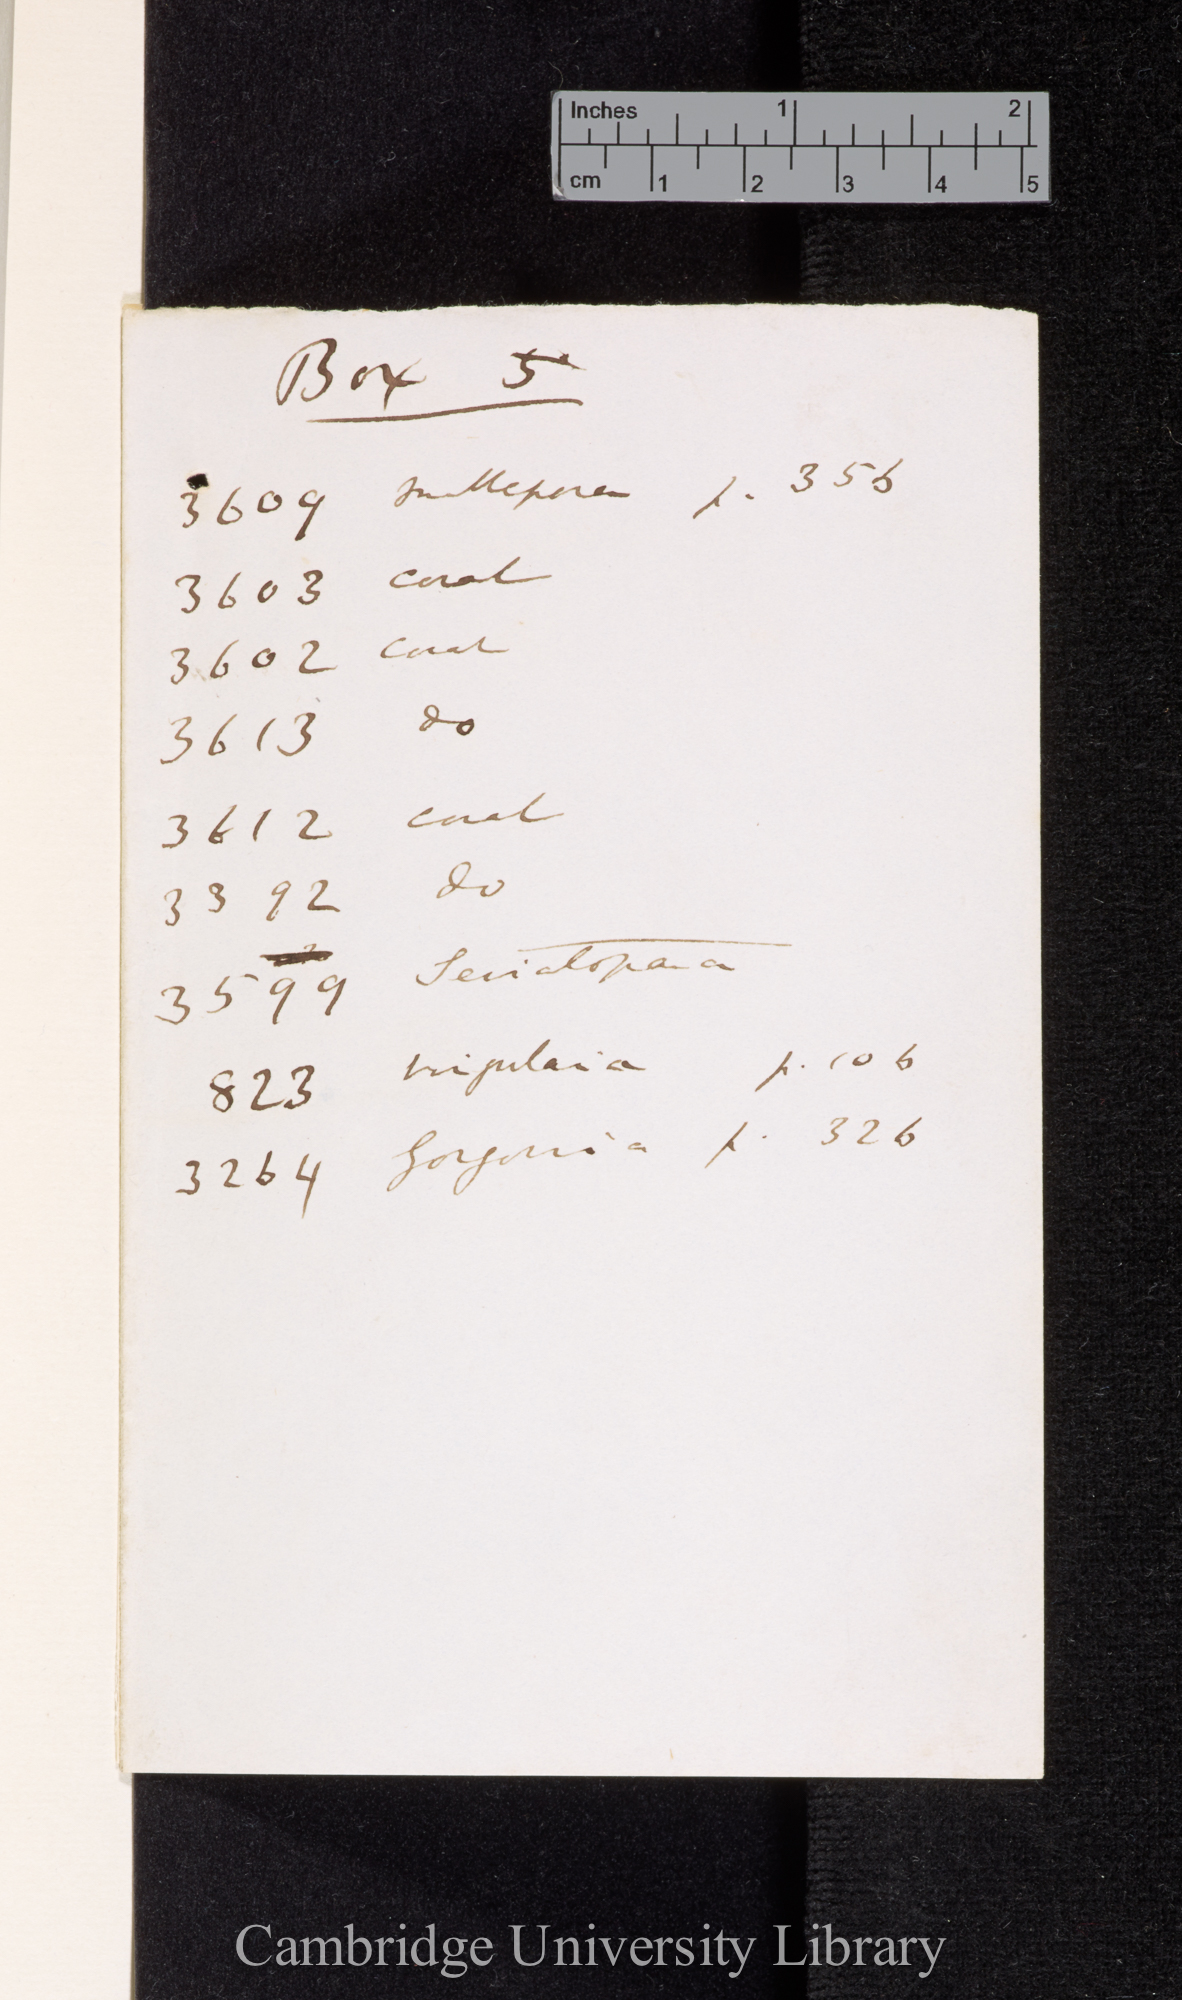 Inches 1 2
cm 1 2 3 4 5
Box 5
3609 millepora p. 356
3603 coral
3602 coral
3613 do
3612 coral
3392 do
3599 Seriatopora
823 virgularia p. 106
3264 Gorgonia p. 326
Cambridge University Library